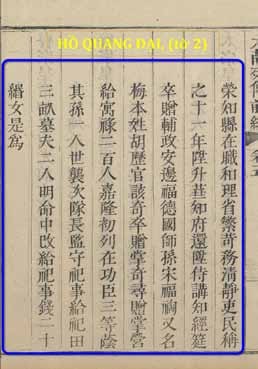 HỒ QUANG ĐẠI, (tờ 2)
榮知縣在職和理省繁苛務清靜吏民稱
之十一年陞升華知府還陞侍講知經筵
卒贈輔政安邊福德國師孫宋福梅又名
梅本姓胡歷官該奇卒贈掌奇尋贈掌營
給寓祿二百人嘉隆初列在功臣三等蔭
其孫一人世襲次隊長監守祀事給祀田
三畝墓夫二人明命中改給祀事錢二十
緡女是爲